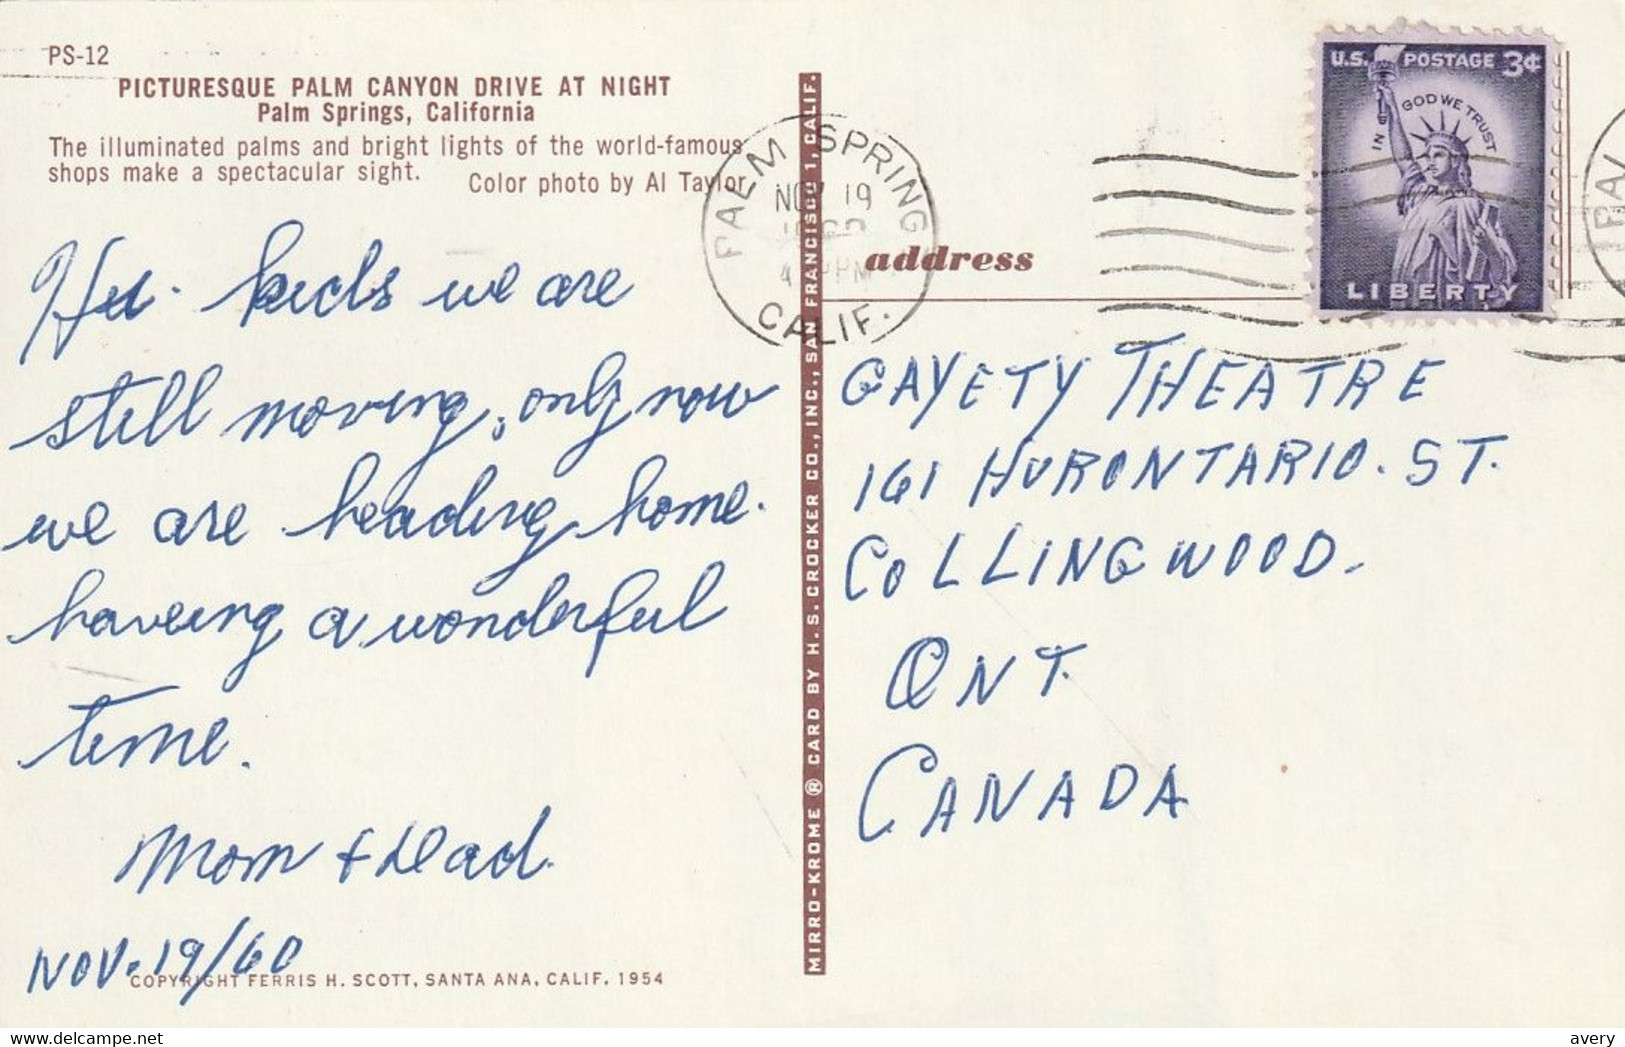 PS-12
PICTURESQUE PALM CANYON DRIVE AT NIGHT
Palm Springs, California
The illuminated palms and bright lights of the world-famous
shops make a spectacular sight.
Color photo by Al Taylor
kids we are
still moving, only now
we are heading home.
haveing a wonderful
time.
Mom + Dad.
NOV. 19/60
COPYRIGHT FERRIS H. SCOTT, SANTA ANA, CALIF. 1954
MIRRO-KROME ® CARD BY H.S. CROCKER CO., INC., SAN FRANCISCO 1, CALIF.
PALM SPRINGS
NOV 19
PM
CALIF.
U.S. POSTAGE 3¢
IN GOD WE TRUST
LIBERTY
address
GAYETY THEATRE
161 HURONTARIO. ST.
COLLINGWOOD.
ONT.
CANADA
PAL
delcampe.net
avery